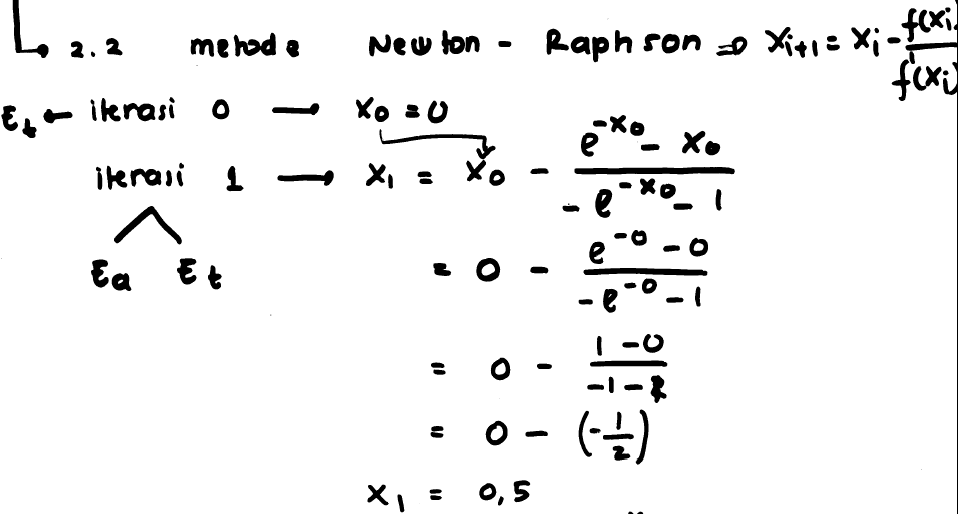 2.2 metode Newton - Raphson ⇒ Xi+1 = Xi - f(Xi) / f'(Xi)
Et ← iterasi 0 → X0 = 0
iterasi 1 → X1 = X0 - (e^-X0 - X0) / (-e^-X0 - 1)
Ea Et = 0 - (e^-0 - 0) / (-e^-0 - 1)
= 0 - (1 - 0) / (-1 - 1)
= 0 - (-1/2)
X1 = 0,5